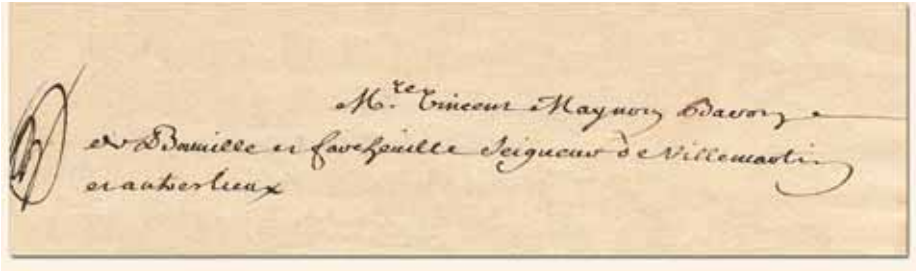 M.re Vincent Maynon Baron
de Bouville et farcheville Seigneur de Villemartin
et autres lieux